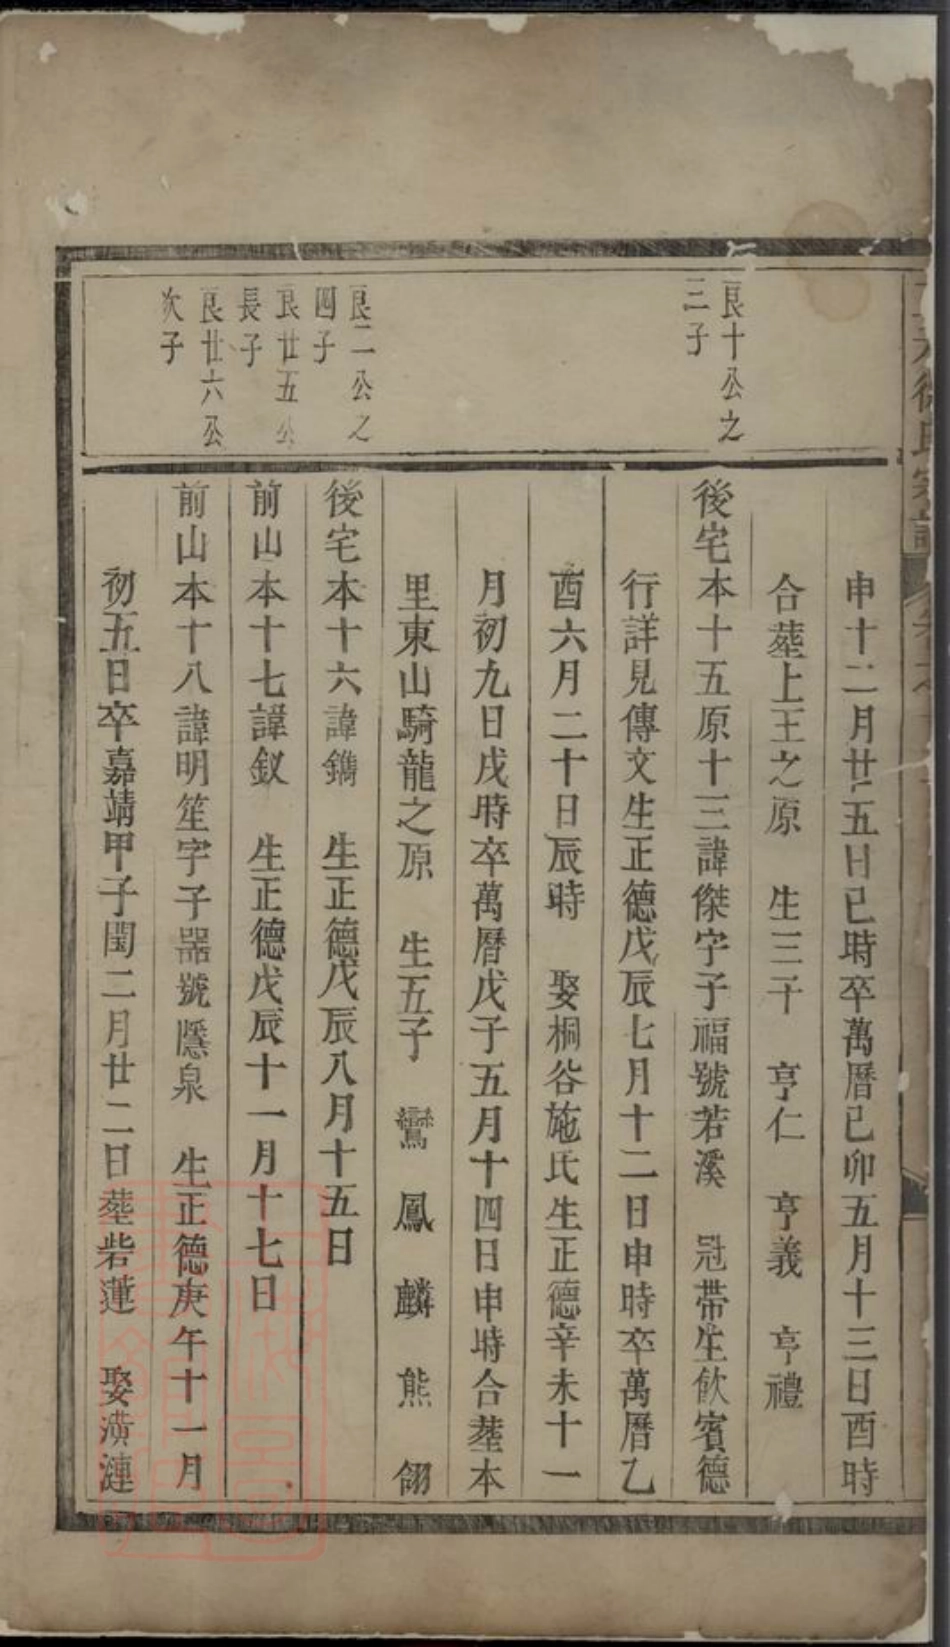 徐氏宗譜
良十公之
三子
良二公之
四子
良廿五公
長子
良廿六公
次子
申十二月廿五日巳時卒萬曆己卯五月十三日酉時
合塟上王之原　生三子　亨仁　亨義　亨禮
後宅本十五原十三諱傑字子福號若溪　冠帶生飲賓德
行詳見傳文生正德戊辰七月十二日申時卒萬曆乙
酉六月二十日辰時　娶桐谷施氏生正德辛未十一
月初九日戌時卒萬曆戊子五月十四日申時合塟本
里東山騎龍之原　生五子　鸞　鳳　麟　熊　翎
後宅本十六諱鐫　生正德戊辰八月十五日
前山本十七諱釵　生正德戊辰十一月十七日
前山本十八諱明笙字子器號隱泉　生正德庚午十一月
初五日卒嘉靖甲子閏二月廿二日塟砦蓮　娶潢漣